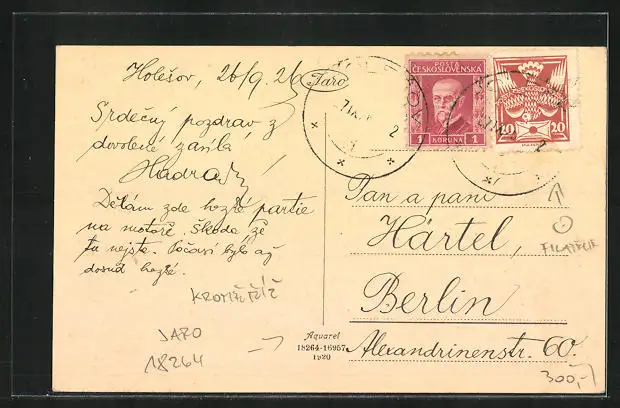 Holešov, 26/9. 26
Jaro
Srdečný pozdrav z
dovolené zasílá
Hadra
Dělám zde hezké partie
na motoře. Škoda, že
tu nejste. Počasí bylo až
dosud hezké.
KROMĚŘÍŽ
JARO
18264
Aquarel
18264-16957
1920
POŠTA
ČESKOSLOVENSKÁ
1 KORUNA 1
20 20
Pan a paní
Härtel,
Berlin
Alexandrinenstr. 60.
FILATELIE
300,-